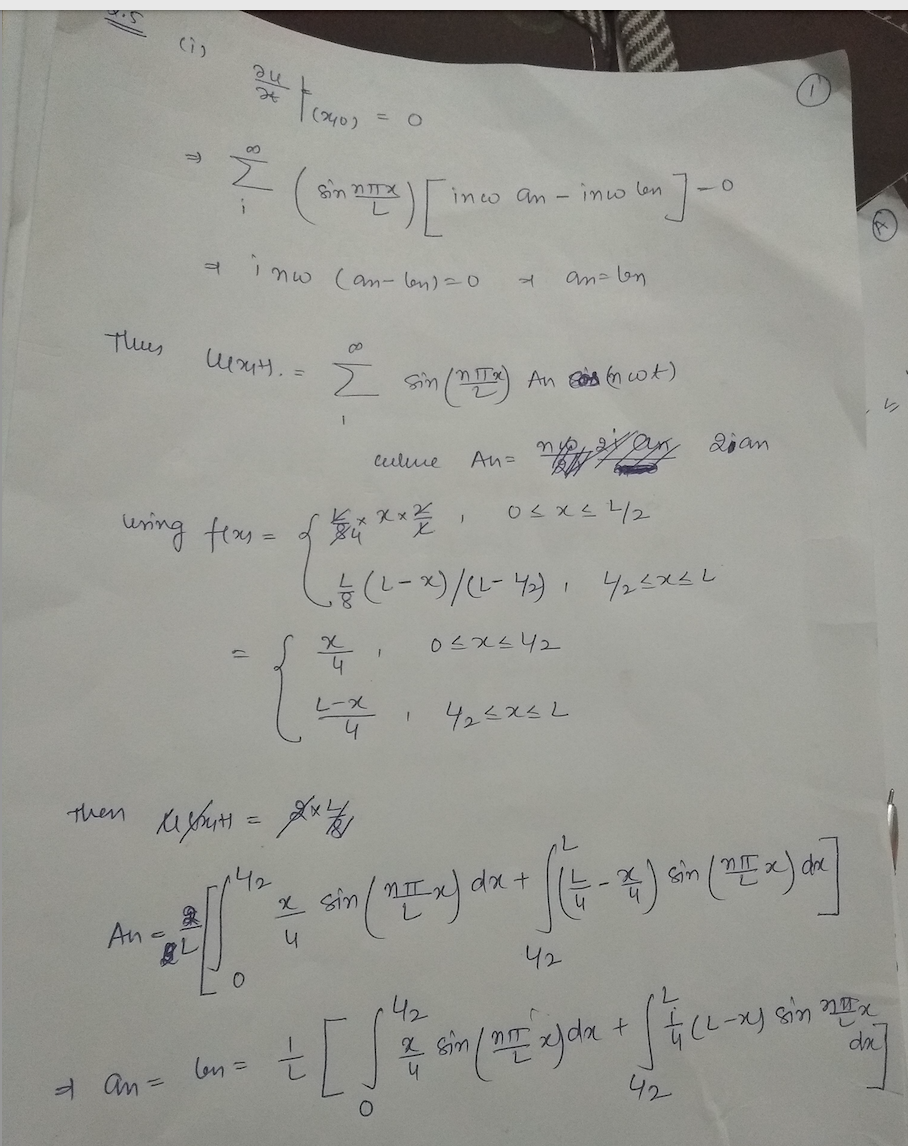 Q.5
(i)
①
∂u/∂t |(x,0) = 0
⇒ ∞ Σ i (sin nπx/L) [inω an − inω bn] = 0
⇒ inω (an − bn) = 0 ⇒ an = bn
Thus u(x,t) = ∞ Σ 1 sin(nπx/L) An cos(nωt)
where An = 2ian
using f(x) = { L/84 × x × 2/L , 0 ≤ x ≤ L/2
L/8 (L−x)/(L−L/2) , L/2 ≤ x ≤ L
= { x/4 , 0 ≤ x ≤ L/2
L−x/4 , L/2 ≤ x ≤ L
then u(x,t) = 2×L/8
An = 2/L [ ∫0^L/2 x/4 sin(nπ/L x) dx + ∫L/2^L (L/4 − x/4) sin(nπ/L x) dx ]
⇒ an = bn = 1/L [ ∫0^L/2 x/4 sin(nπ/L x) dx + ∫L/2^L 1/4 (L−x) sin nπ/L x dx ]